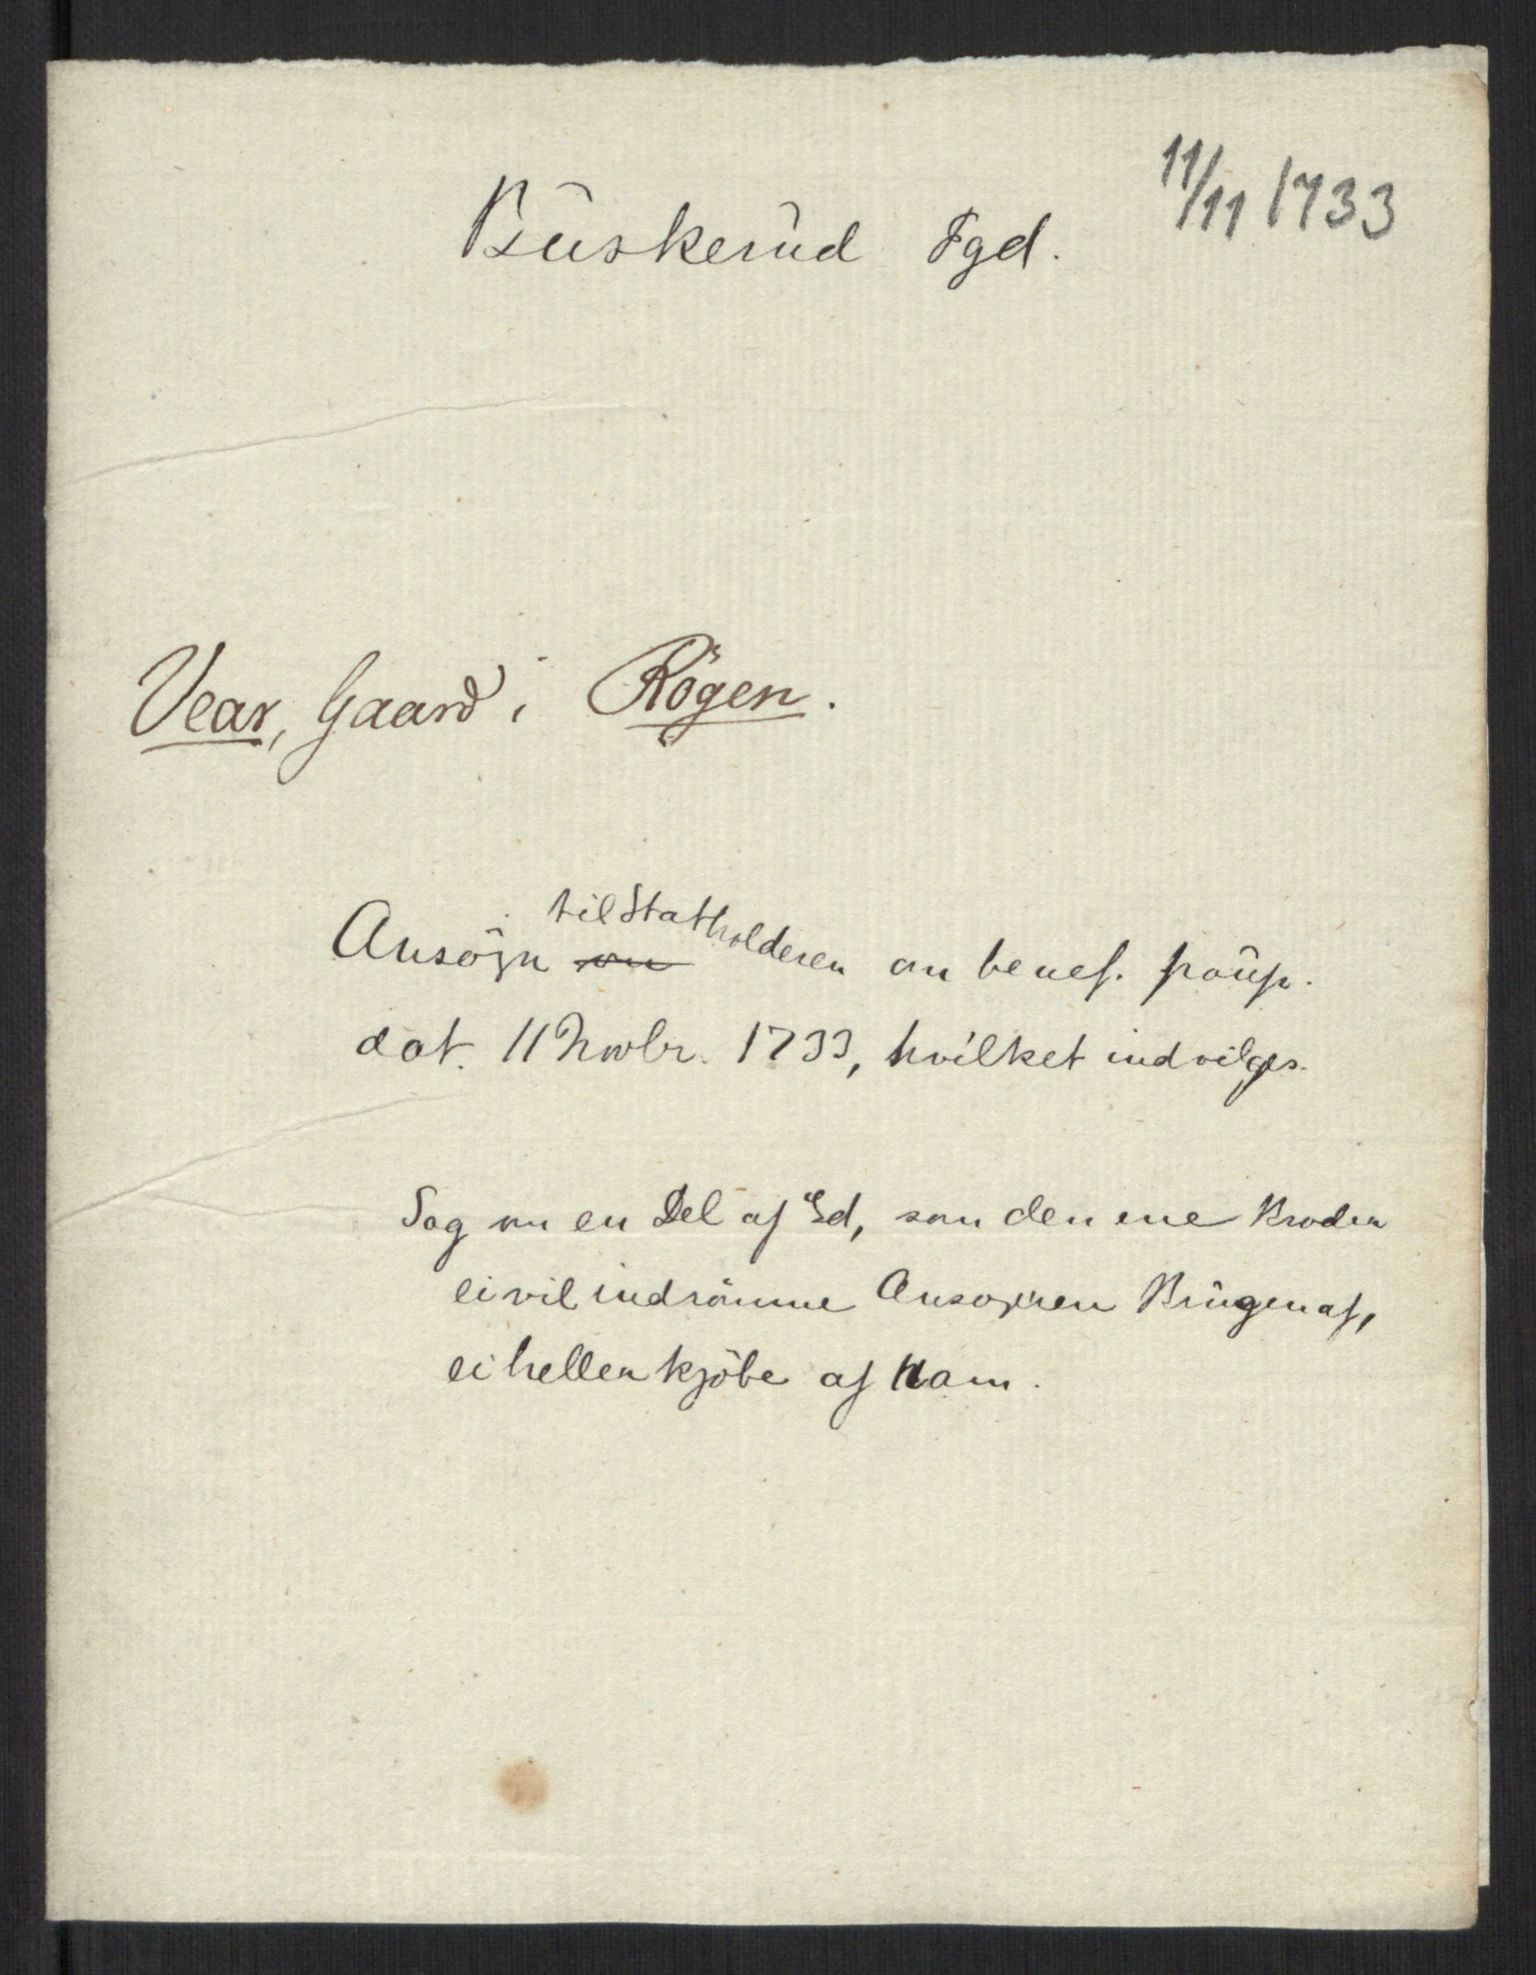 11/11 1733
Buskerud Fgd.
Vear, Gaard i Rögen.
Ansögn om til Statholderen om benef. paup.
dat. 11 Novbr. 1733, hvilket indvilges.
Sag om en Del af Gd, som den ene Broder
ei vil indrömme Ansögeren Brugen af,
ei heller kjöbe af Ham.